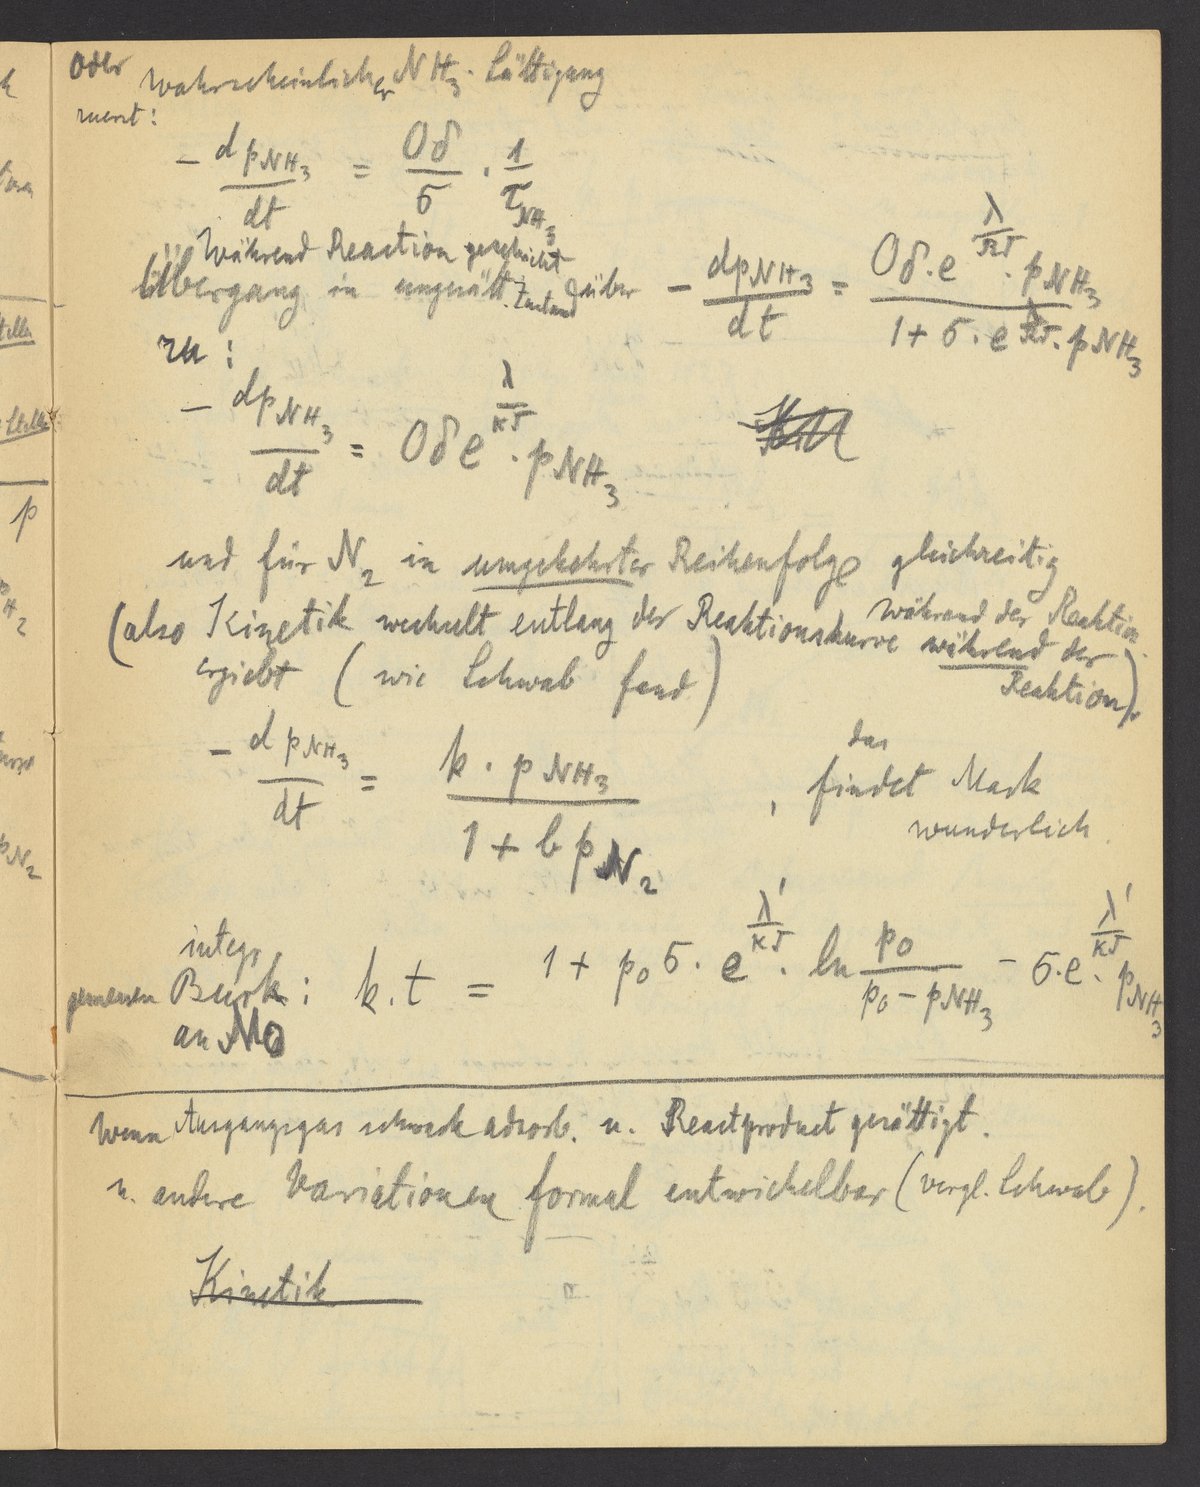 oder wahrscheinlicher NH₃-Sättigung
zuerst:
− dpNH₃/dt = Oδ/σ · 1/τNH₃
Während Reaction geschieht
Übergang in ungesätt. Zustand über
− dpNH₃/dt = Oδ·e^(λ/RT) · pNH₃ / (1 + σ·e^(λ/RT) · pNH₃)
zu:
− dpNH₃/dt = Oδe^(λ/RT) · pNH₃
und für N₂ in umgekehrter Reihenfolge gleichzeitig
während der Reaktion
(also Kinetik wechselt entlang der Reaktionskurve während der
Reaktion).
ergiebt (wie Schwab fand)
− dpNH₃/dt = k · pNH₃ / (1 + b pN₂) , das
findet Mark
wunderlich.
integr
gemessen Burk: k.t = 1 + p₀σ · e^(λ'/κT) · ln p₀/(p₀ − pNH₃) − σ·e^(λ'/κT) · pNH₃
an Mo
Wenn Ausgangsgas schwach adsorb. u. Reactproduct gesättigt.
u. andere Variationen formal entwickelbar (vergl. Schwab).
Kinetik